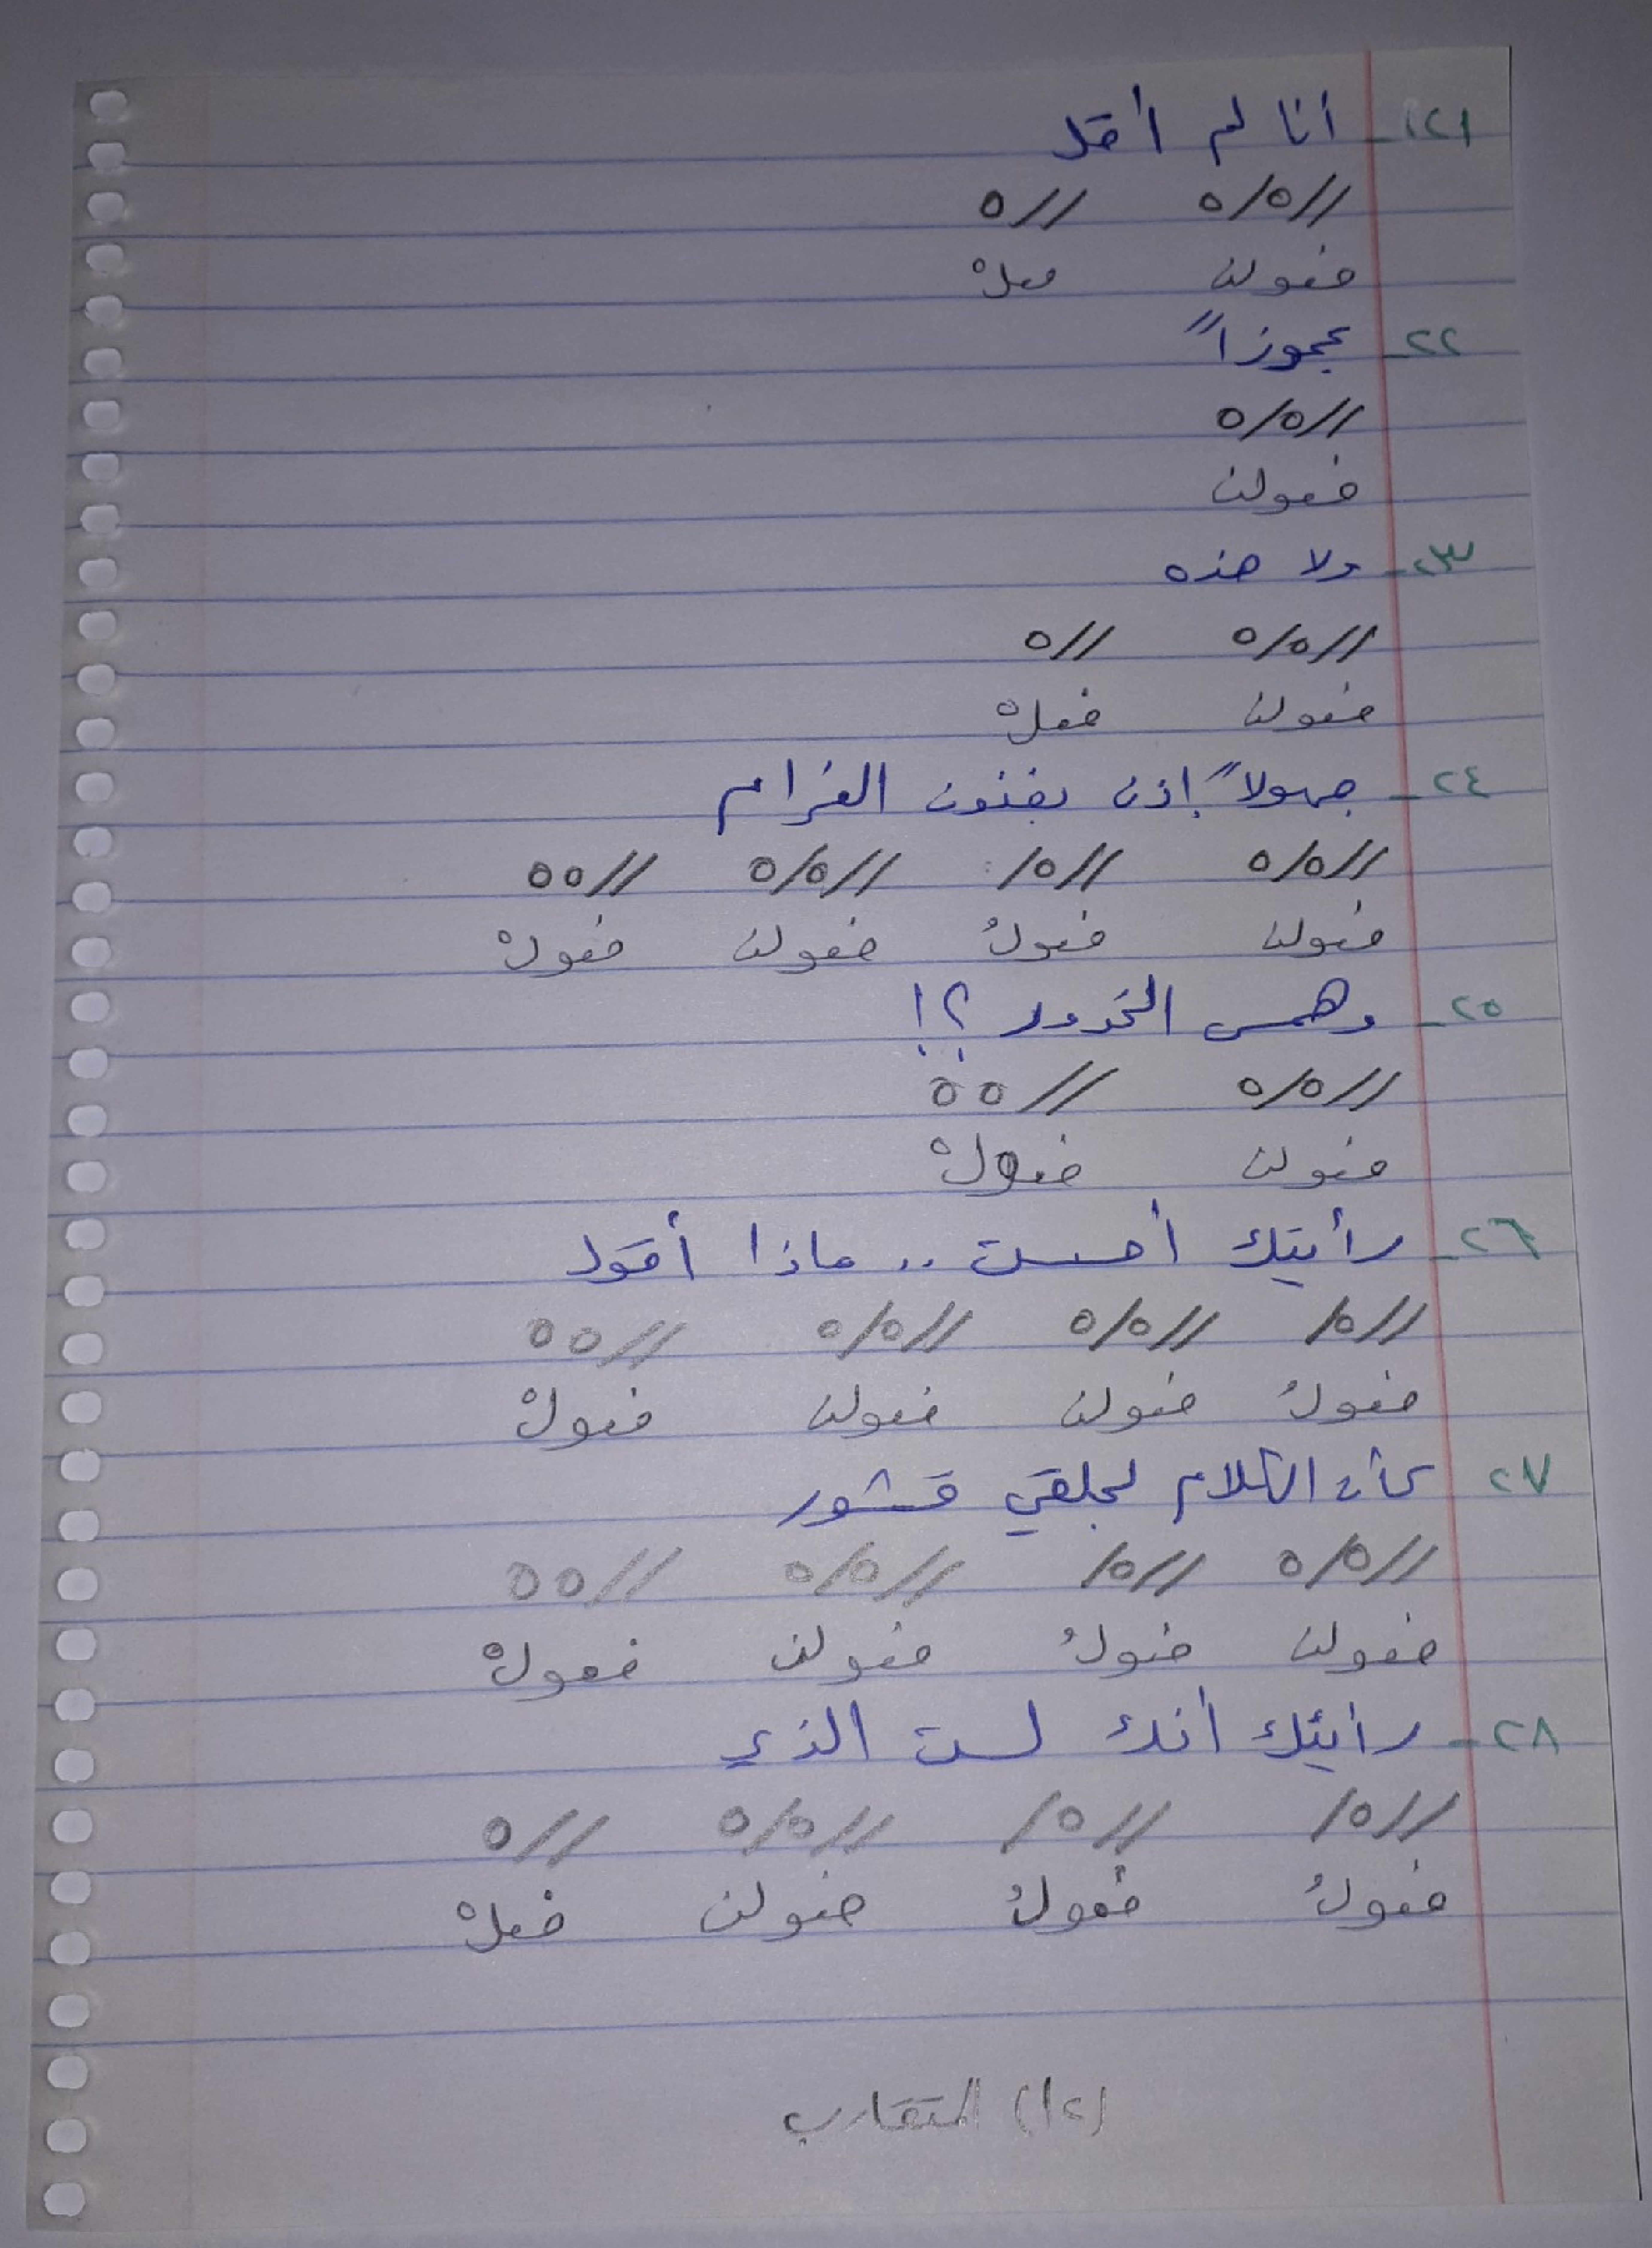 ٢١- أنا لم أقل
//ه/ه //ه
فعولن فعلْ
٢٢- عجوزاً
//ه/ه
فعولن
٢٣- ولا هذه
//ه/ه //ه
فعولن فعلْ
٢٤- جهولاً إذن بفنون الغرام
//ه/ه //ه/ //ه/ه //هه
فعولن فعولُ فعولن فعولْ
٢٥- وهمس الخدور ؟!
//ه/ه //هه
فعولن فعولْ
٢٦- رأيتك أحسست .. ماذا أقول
//ه/ //ه/ه //ه/ه //هه
فعولُ فعولن فعولن فعولْ
٢٧ كأن الكلام لحلقي قشور
//ه/ه //ه/ //ه/ه //هه
فعولن فعولُ فعولن فعولْ
٢٨- رأيتك أنك لست الذي
//ه/ //ه/ //ه/ه //ه
فعولُ فعولُ فعولن فعلْ
(١٢) المتقارب